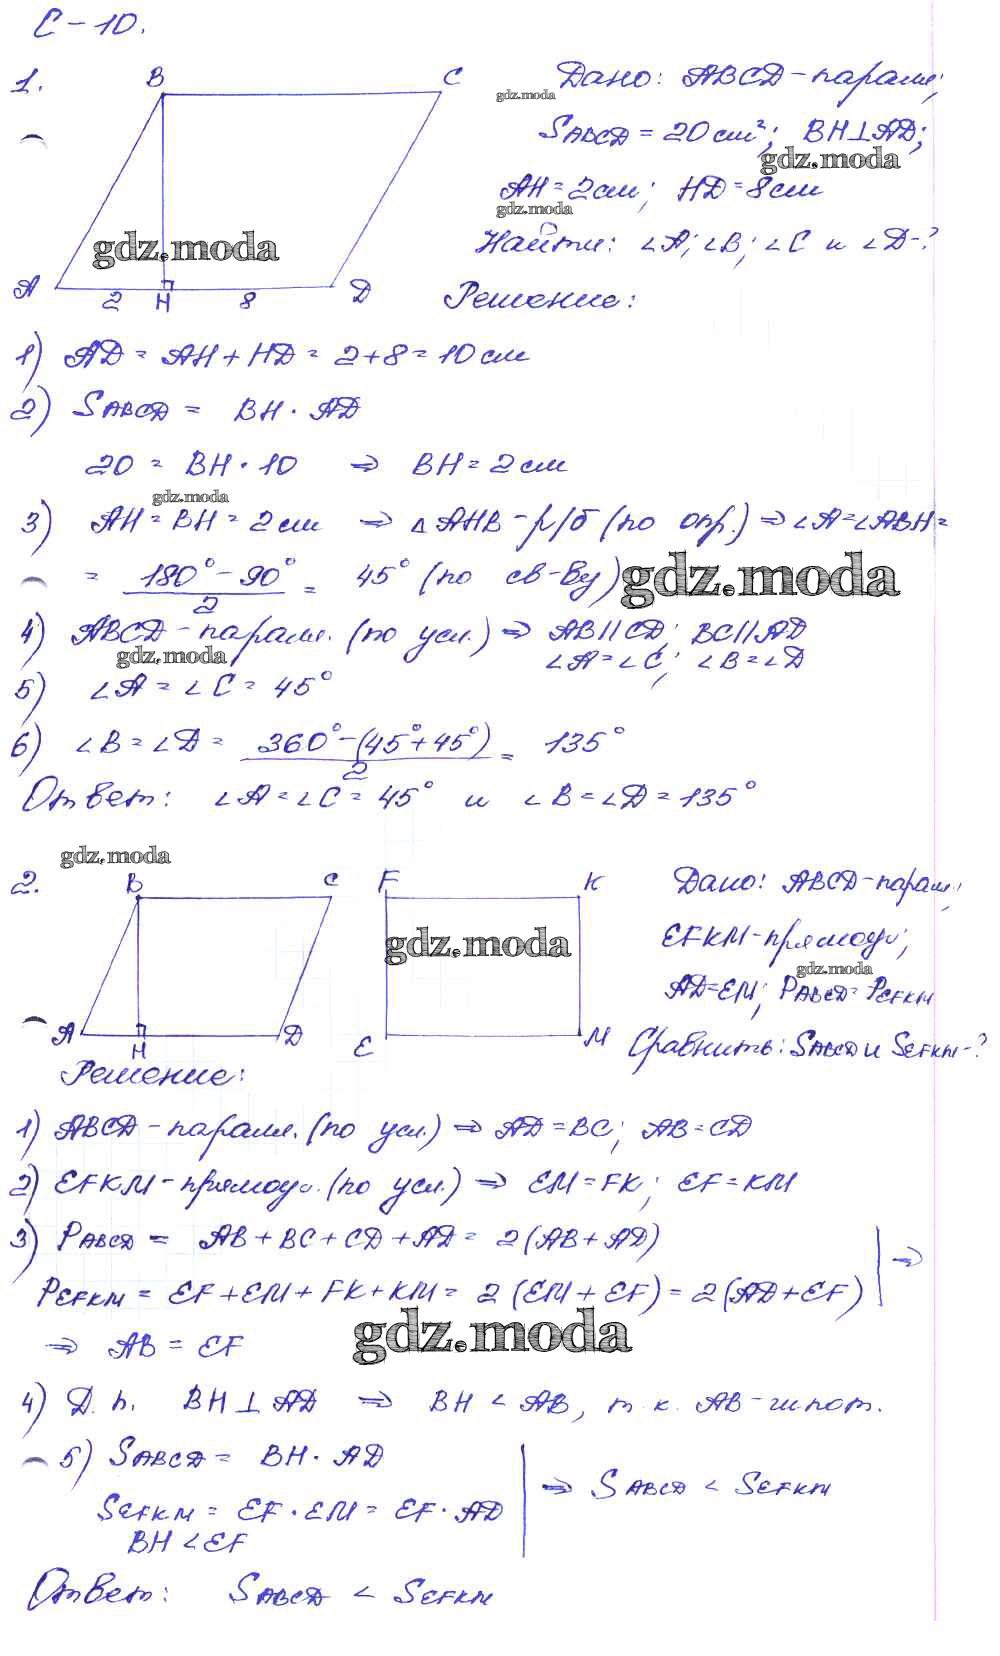 С-10.
1.
B C
A 2 H 8 D
Дано: ABCD-паралл;
SABCD = 20 см²; BH⊥AD;
AH = 2 см; HD = 8 см
Найти: ∠A; ∠B; ∠C и ∠D-?
Решение:
1) AD = AH + HD = 2+8 = 10 см
2) SABCD = BH · AD
20 = BH · 10 ⇒ BH = 2 см
3) AH = BH = 2 см ⇒ △AHB - р/б (по опр.) ⇒ ∠A = ∠ABH =
= (180° - 90°)/2 = 45° (по св-ву)
4) ABCD - паралл. (по усл.) ⇒ AB||CD; BC||AD
∠A = ∠C; ∠B = ∠D
5) ∠A = ∠C = 45°
6) ∠B = ∠D = (360° - (45° + 45°))/2 = 135°
Ответ: ∠A = ∠C = 45° и ∠B = ∠D = 135°
2.
B C F K
A H D E M
Дано: ABCD-паралл;
EFKM-прямоуг;
AD=EM; PABCD = PEFKM
Сравнить: SABCD и SEFKM-?
Решение:
1) ABCD - паралл. (по усл.) ⇒ AD = BC; AB = CD
2) EFKM - прямоуг. (по усл.) ⇒ EM = FK; EF = KM
3) PABCD = AB + BC + CD + AD = 2(AB + AD)
PEFKM = EF + EM + FK + KM = 2(EM + EF) = 2(AD + EF) ⇒
⇒ AB = EF
4) Д.п. BH ⊥ AD ⇒ BH < AB, т.к. AB - гипот.
5) SABCD = BH · AD
SEFKM = EF · EM = EF · AD ⇒ SABCD < SEFKM
BH < EF
Ответ: SABCD < SEFKM
gdz.moda
gdz.moda
gdz.moda
gdz.moda
gdz.moda
gdz.moda
gdz.moda
gdz.moda
gdz.moda
gdz.moda
gdz.moda